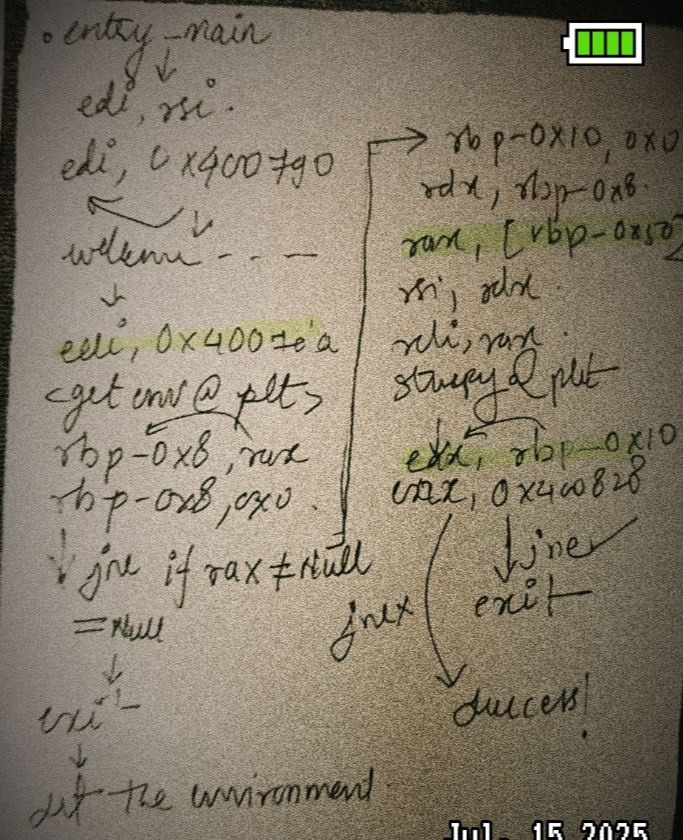 . entry - main
edi, rsi.
edi, 0x400790
welcome - - - —
edi, 0x4007ea
<getenv @ plt>
rbp-0x8, rax
rbp-0x8, 0x0.
jne if rax ≠ Null
= Null
exit
set the environment
rbp-0x10, 0x0
rdx, rbp-0x8.
rax, [rbp-0x50
rsi, rdx.
rdi, rax.
strcpy @ plt
rbp-0x10
eax, 0x400828
jne ✓
exit
jne x
success!
Jul. 15 2025